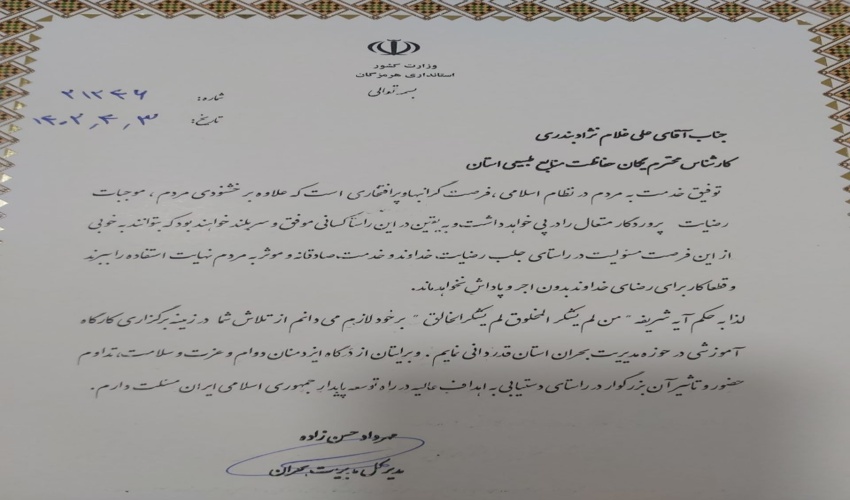 وزارت کشور
استانداری هرمزگان
بسمه تعالی
شماره: ۲۱۲۴۶
تاریخ: ۱۴۰۲,۴,۳
جناب آقای علی غلام نژاد بندری
کارشناس محترم یگان حفاظت منابع طبیعی استان
توفیق خدمت به مردم در نظام اسلامی ، فرصت گرانبها و پرافتخاری است که علاوه بر خشنودی مردم ، موجبات
رضایت پروردگار متعال را در پی خواهد داشت. و به یقین در این راستا کسانی موفق و سربلند خواهند بود که بتوانند به خوبی
از این فرصت مسئولیت در راستای جلب رضایت خداوند و خدمت صادقانه و موثر به مردم نهایت استفاده را ببرند
و قطعا کار برای رضای خداوند بدون اجر و پاداش نخواهد ماند.
لذا به حکم آیه شریفه "من لم یشکر المخلوق لم یشکر الخالق" بر خود لازم می دانم از تلاش شما در زمینه برگزاری کارگاه
آموزشی در حوزه مدیریت بحران استان قدردانی نمایم . و برایتان از درگاه ایزد منان دوام و عزت و سلامت، تداوم
حضور و تاثیر آن بزرگوار در راستای دستیابی به اهداف عالیه در راه توسعه پایدار جمهوری اسلامی ایران مسئلت دارم .
مهرداد حسن زاده
مدیرکل مدیریت بحران